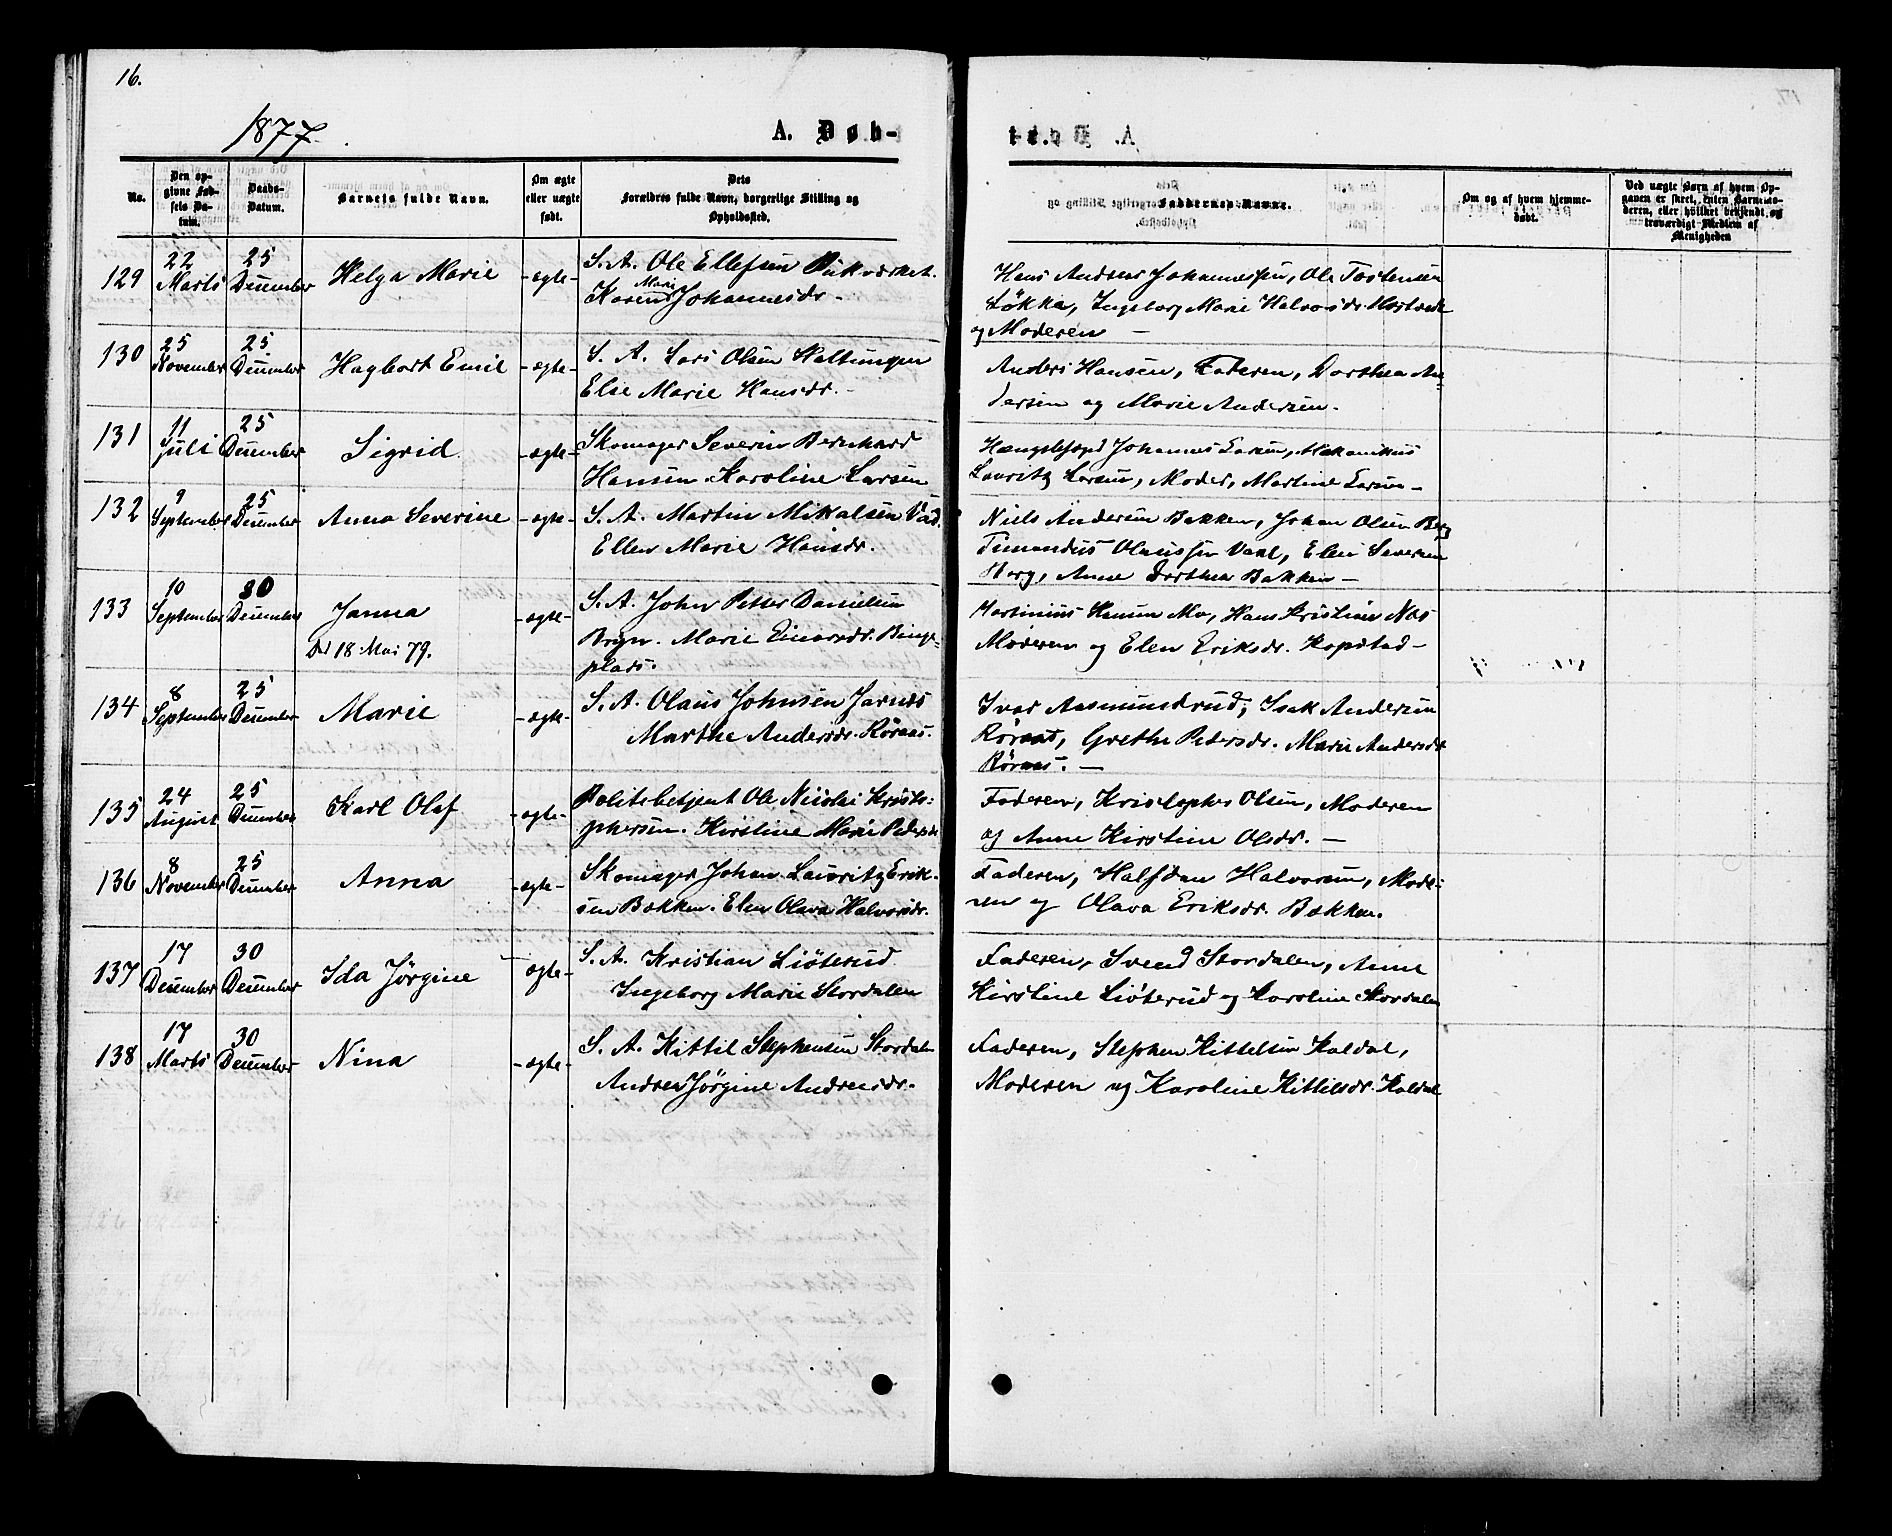 16.
1877.
A. Døb-
No.
Den op-
givne Fød-
sels Da-
tum.
Daabs-
Datum.
Barnets fulde Navn.
Om ægte
eller uægte
født.
Dets
Forældres fulde Navn, borgerlige Stilling og
Opholdssted.
Faddernes Navne.
Om og af hvem hjemme-
døbt.
Ved uægte Børn af hvem Op-
gaven er skeet, enten Barnets
deren, eller hvilket bekjendt og
troværdigt Medlem af
Menigheden
129 22 Marts 25 December Helga Marie - ægte- S. A. Ole Ellefsen
Karen Marie Johannesdr.
Hans Andreas Johannessen, Ole Tostensen
Løkka, Ingeborg Marie Halvorsdr.
og Moderen —
130 25 November 25 December Hagbart Emil - ægte- S. A. Lars Olsen
Else Marie Hansdr. -
Anders Hansen, Faderen, Dorthea An-
dersen og Marie Andersen.
131 11 Juli 25 December Sigrid. - ægte- Skomager Severin Bernhard
Hansen. Karoline Larsen
Johannes Larsen, Mekanikus
Lauritz Larsen, Moder, Martine Larsen -
132 9 September 25 December Anna Severine - ægte- S. A. Martin Mikalsen
Ellen Marie Hansdr.
Niels Andersen Bakken, Johan Olsen Berg
Olaussen Elen Severine
Berg, Anne Dorthea Bakken —
133 10 September 30 December Janna - ægte- S. A. John Petter Danielsen
D. 18 Mai 79. Bryn. Marie Einarsdr. Binge-
plads.
Martinius Hansen Mo, Hans Kristian Næs
Moderen og Elen Eriksdr. Kopstad -
134 8 September 25 December Marie - ægte- S. A. Olaus Johnsen
Marthe Andersdr. Røraas.
Ivar Aasmundrud, Isak Andersen
Røraas, Grethe Pedersdr. Marie Andersdr
Røraas. —
135 24 August 25 December Karl Olaf - ægte- Politibetjent Ole Nicolai Kristo-
phersen. Kirstine Marie Pedersdr
Faderen, Kristopher Olsen, Moderen
og Anne Kirstine Olsdr. —
136 8 November 25 December Anna - ægte- Skomager Johan Lauritz Erik-
sen Bakken. Elen Olava Halvorsdr.
Faderen, Halfdan Halvorsen, Mode-
ren og Olava Eriksdr. Bakken.
137 17 December 30 December Ida Jørgine - ægte- S. A. Kristian Liøterud
Ingeborg Marie Stordalen
Faderen, Svend Stordalen, Anne
Kirstine Liøterud og Karoline Stordalen
138 17 Marts 30 December Nina - ægte- S. A. Kittil Stephensen Stordalen
Andrea Jørgine Andreasdr.
Faderen, Stephen Kittelsen Kaldal,
Moderen og Karoline Kittilsdr. Kaldal